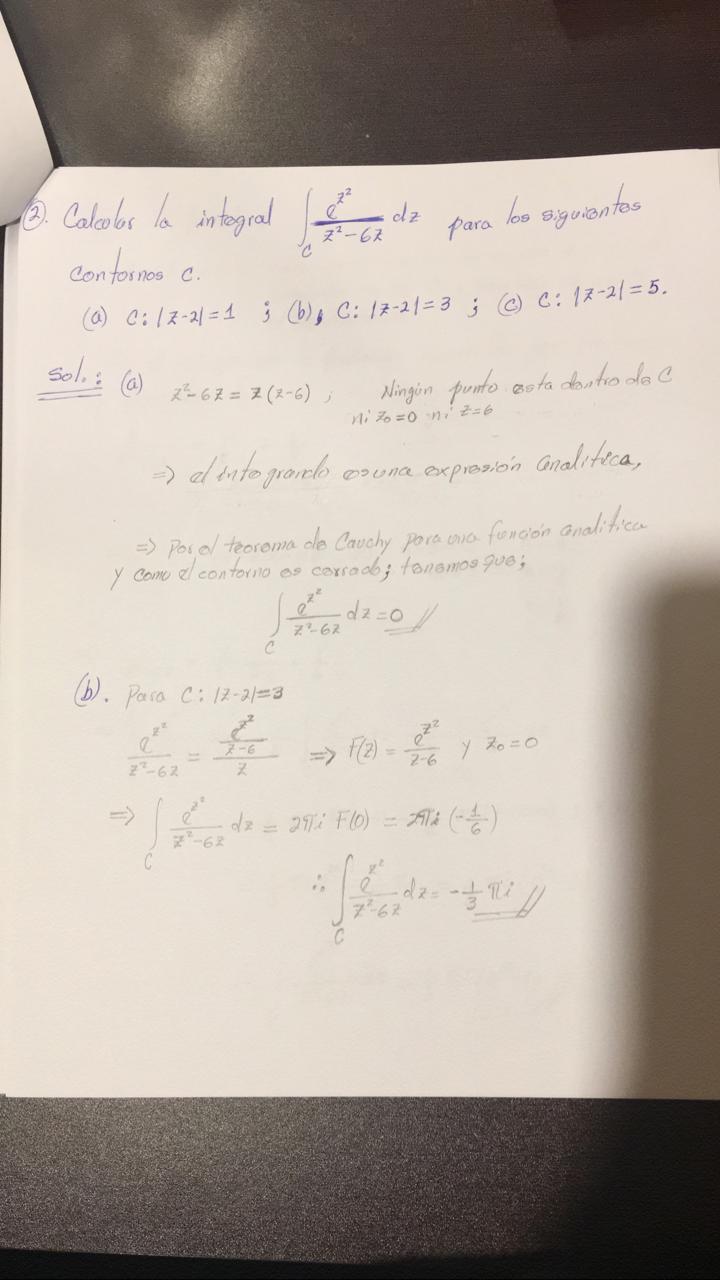 ②. Calcular la integral ∫_C e^{z²}/(z²-6z) dz para los siguientes
contornos C.
(a) C: |z-2|=1 ; (b), C: |z-2|=3 ; (c) C: |z-2|=5.
Sol.: (a) z²-6z = z(z-6) ; Ningún punto esta dentro de C
ni z₀=0 ni z=6
=> el integrando es una expresión analitica,
=> Por el teorema de Cauchy para una función analitica
y como el contorno es cerrado; tenemos que;
∫_C e^{z²}/(z²-6z) dz = 0 //
(b). Para C: |z-2|=3
e^{z²}/(z²-6z) = (e^{z²}/(z-6))/z => F(z) = e^{z²}/(z-6) y z₀=0
=> ∫_C e^{z²}/(z²-6z) dz = 2πi F(0) = 2πi (-1/6)
∴ ∫_C e^{z²}/(z²-6z) dz = -1/3 πi //